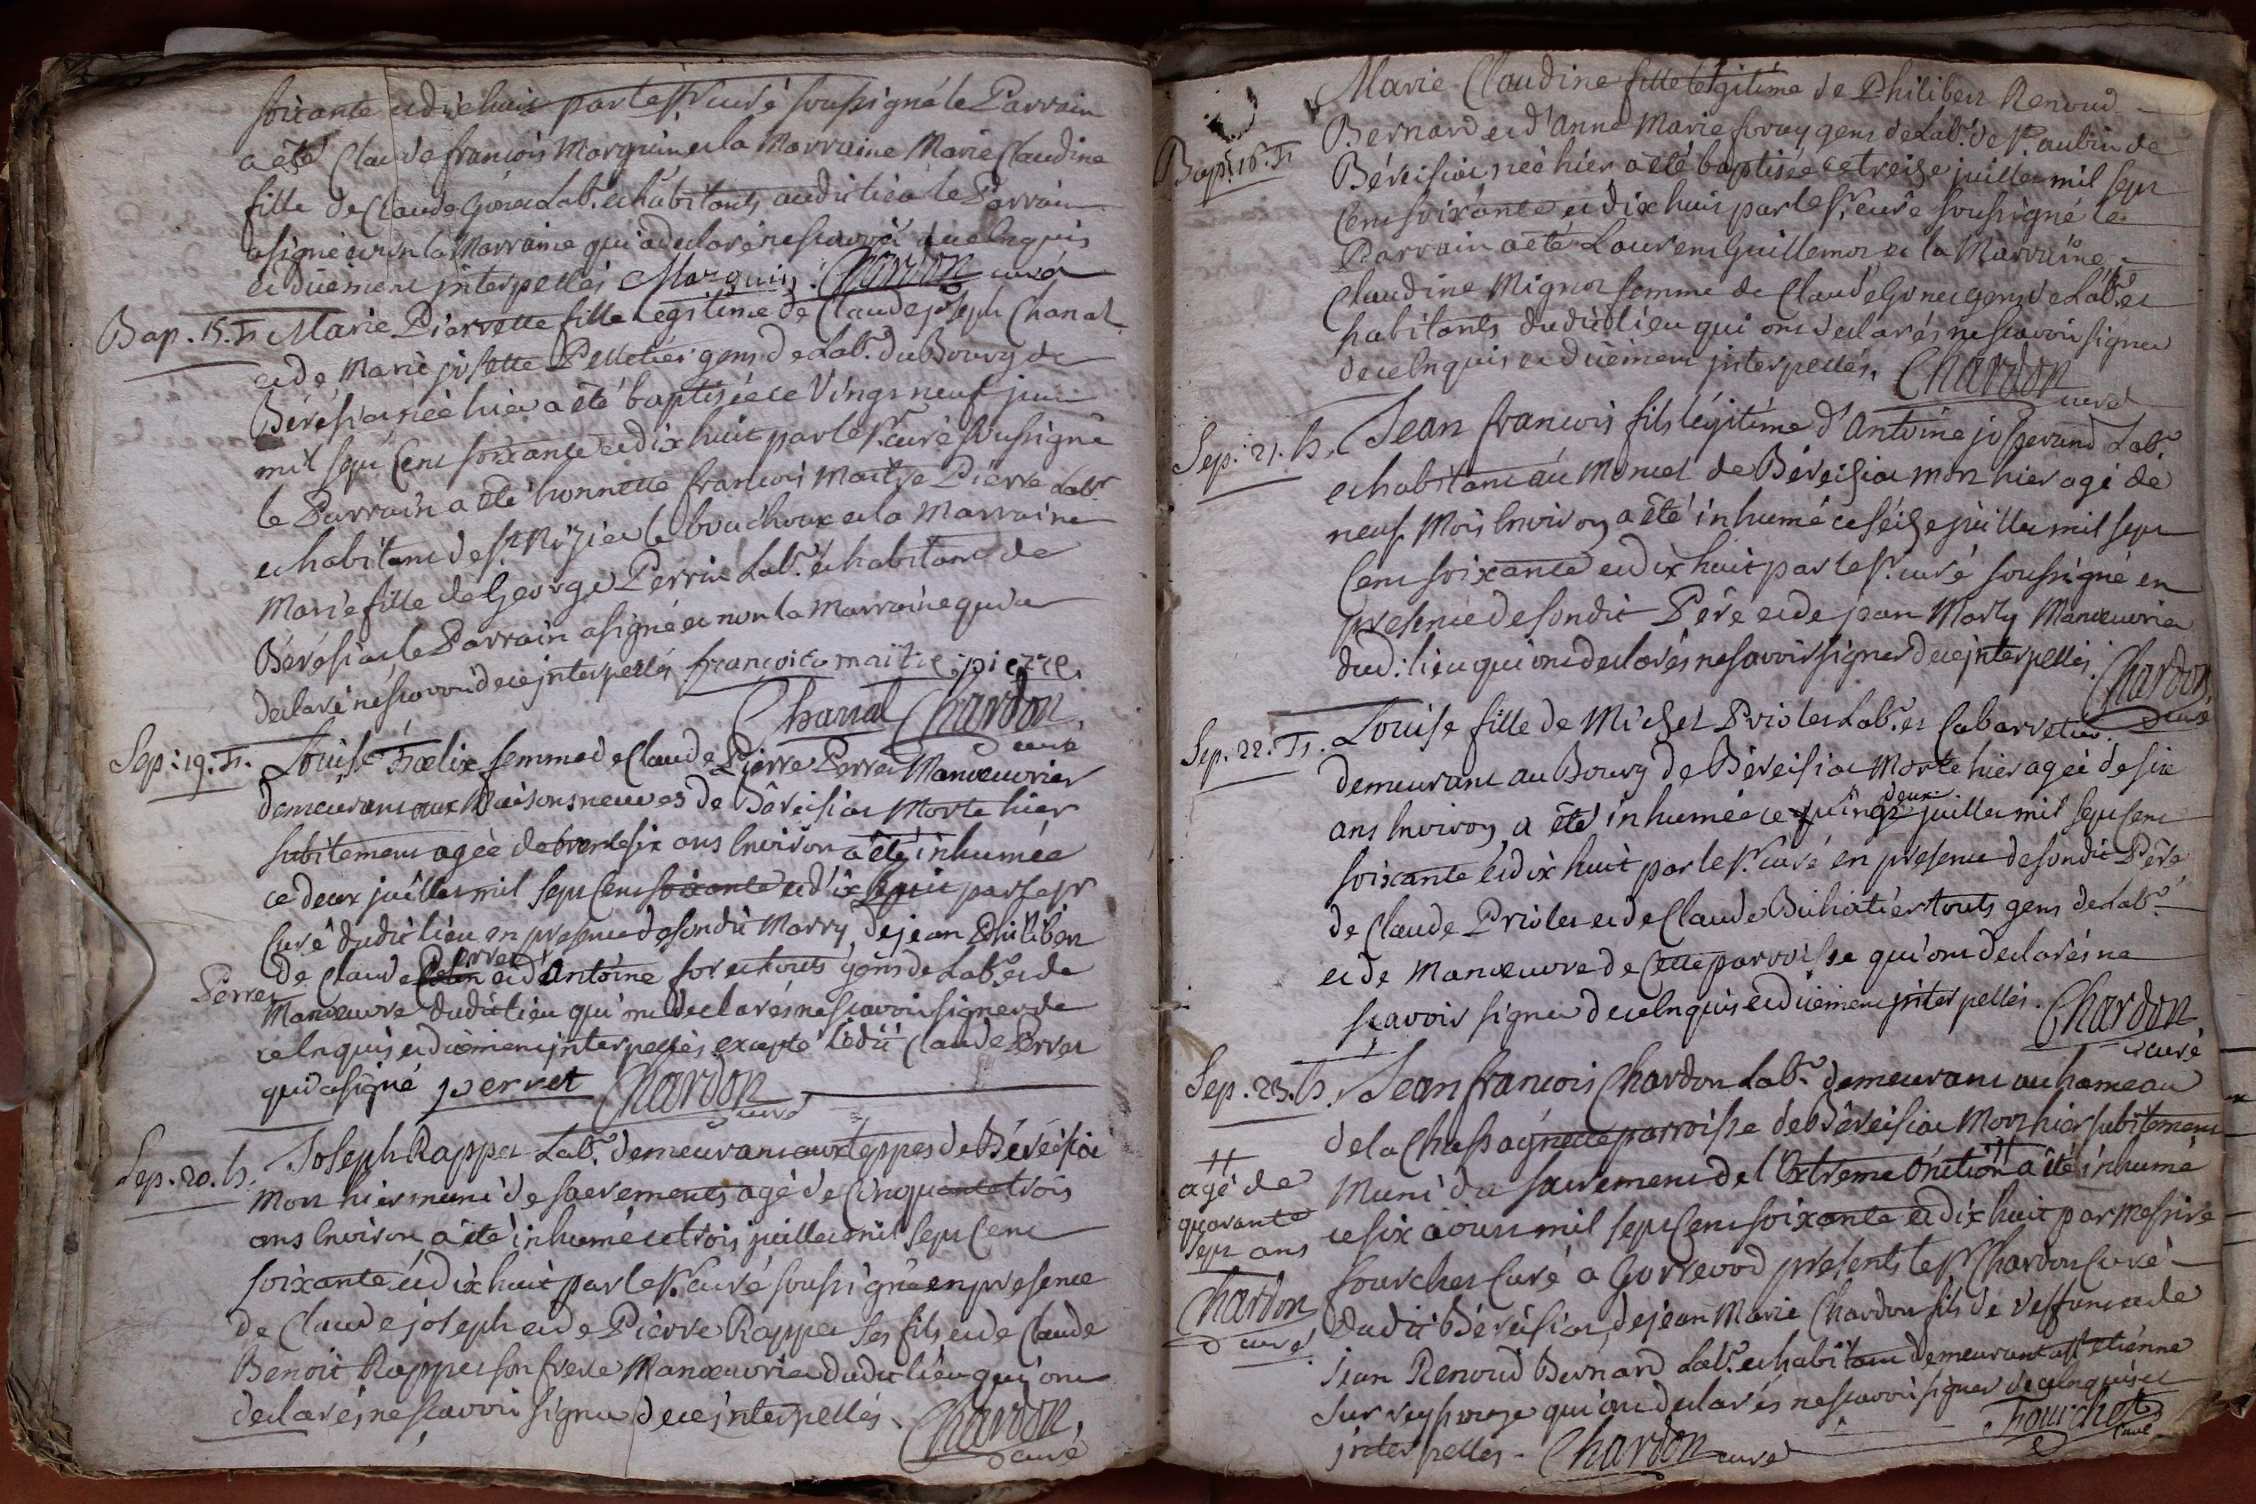 soixante et dixhuit par le Sr curé soussigné le Parrain
a été Claude francois Marguin et la Marraine Marie Claudine
fille de Claude Gonet Labr. et habitants audit lieu le Parrain
a signé et non la Marraine qui a déclaré ne scavoir de ce Enquis
et duëment interpellés Marguin Chardon curé
Bap. 15. F. Marie Pierrette fille legitime de Claude joseph Chanal
et de Marie josette Pelletier gens de Labr. du Bourg de
Béresiat née hier a été baptisée ce Vingt neuf juin
mil sept Cent soixante et dixhuit par le Sr. curé soussigné
le Parrain a été honnette francois Maitre Pierre Labr.
et habitant de St. Nizier le bouchoux et la Marraine
Marie fille de George Perrin Labr. et habitant de
Béresiat le Parrain a signé et non la Marraine qui a
declaré ne scavoir de ce interpellés francois maitre pierre
Chanal Chardon curé
Sep: 19. F. Louise Fælix femme de Claude Pierre Perret Manœuvrier
demeurant aux Maisons neuves de Béreisiat Morte hier
subitement agée de trentesix ans Environ a été inhumée
ce deux juillet mil sept Cent soixante et dix huit par le Sr
Curé dudit lieu en presence de son dit Marry, de jean Philibert
Perret
de Claude Perret et d'Antoine foret touts gens de Labr. et de
Manœuvre dudit lieu qui ont declarés ne scavoir signer de
ce Enquis et duëment interpellés excepté ledit Claude Perret
qui a signé perret Chardon curé
Sep. 20. h. Joseph Rappet Labr. demeurant aux teppes de Béréisiat
Mort hier muni de sacrements agé de Cinquante trois
ans Environ a été inhumé ce trois juillet mil sept Cent
soixante et dix huit par le Sr. Curé soussigné en presence
de Claude joseph et de Pierre Rappet ses fils et de Claude
Benoit Rappet son frere Manœuvrier dudit lieu qui ont
declarés ne scavoir signer de ce interpellés. Chardon curé
Bap. 16. F.
Marie Claudine fille legitime de Philibert Renoud
Bernard et d'Anne Marie foray gens de Labr. de St. aubin de
Béreisiat née hier a été baptisée ce treize juillet mil sept
Cent soixante et dix huit par le Sr. curé soussigné le
Parrain a été Laurent Guillemot et la Marraine
Claudine Mignot femme de Claude Gonet gens de Labr. et
habitants dudit lieu qui ont declarés ne scavoir signer
de ce Enquis et duëment interpellés. Chardon curé
Sep: 21. h. Jean francois fils légitime d'Antoine josserand Labr.
et habitant au Moncel de Béreisiat mort hier agé de
neuf Mois Environ a été inhumé ce séize juillet mil sept
Cent soixante et dix huit par le Sr. curé soussigné en
presence de son dit Père et de jean Marty Manœuvrier
dud: lieu qui ont declarés ne savoir signer de ce interpellés. Chardon curé
Sep. 22. F. Louise fille de Michel Priolet Labr. et Cabarretier
demeurant au Bourg de Béreisiat Morte hier agée de six
ans Environ a été inhumée ce vingt deux juillet mil sept cent
soixante et dix huit par le Sr. curé en presence de son dit Père
de Claude Priolet et de Claude Buhatier touts gens de Labr.
et de Manœuvre de Cette parroisse qui ont declarés ne
scavoir signer de ce Enquis et duëment interpellés. Chardon curé
Sep. 23. h. Jean francois Chardon Labr. demeurant au hameau
de la Chassagnette parroisse de Béreisiat Mort hier subitement
Muni du sacrement de l'Extreme Onction ⌗ a été inhumé
⌗ agé de
quarante
sept ans
Chardon
curé
ce six aoust mil sept Cent soixante et dix huit par Messire
fourchet Curé a Gorrevod presents le Sr Chardon Curé
dudit Béréisiat, de jean Marie Chardon fils de deffunt et de
jean Renoud Bernard Labr. et habitant demeurant a St etienne
sur reyssouze qui ont declarés ne scavoir signer de ce Enquis et
interpellés. Chardon curé fourchet Curé